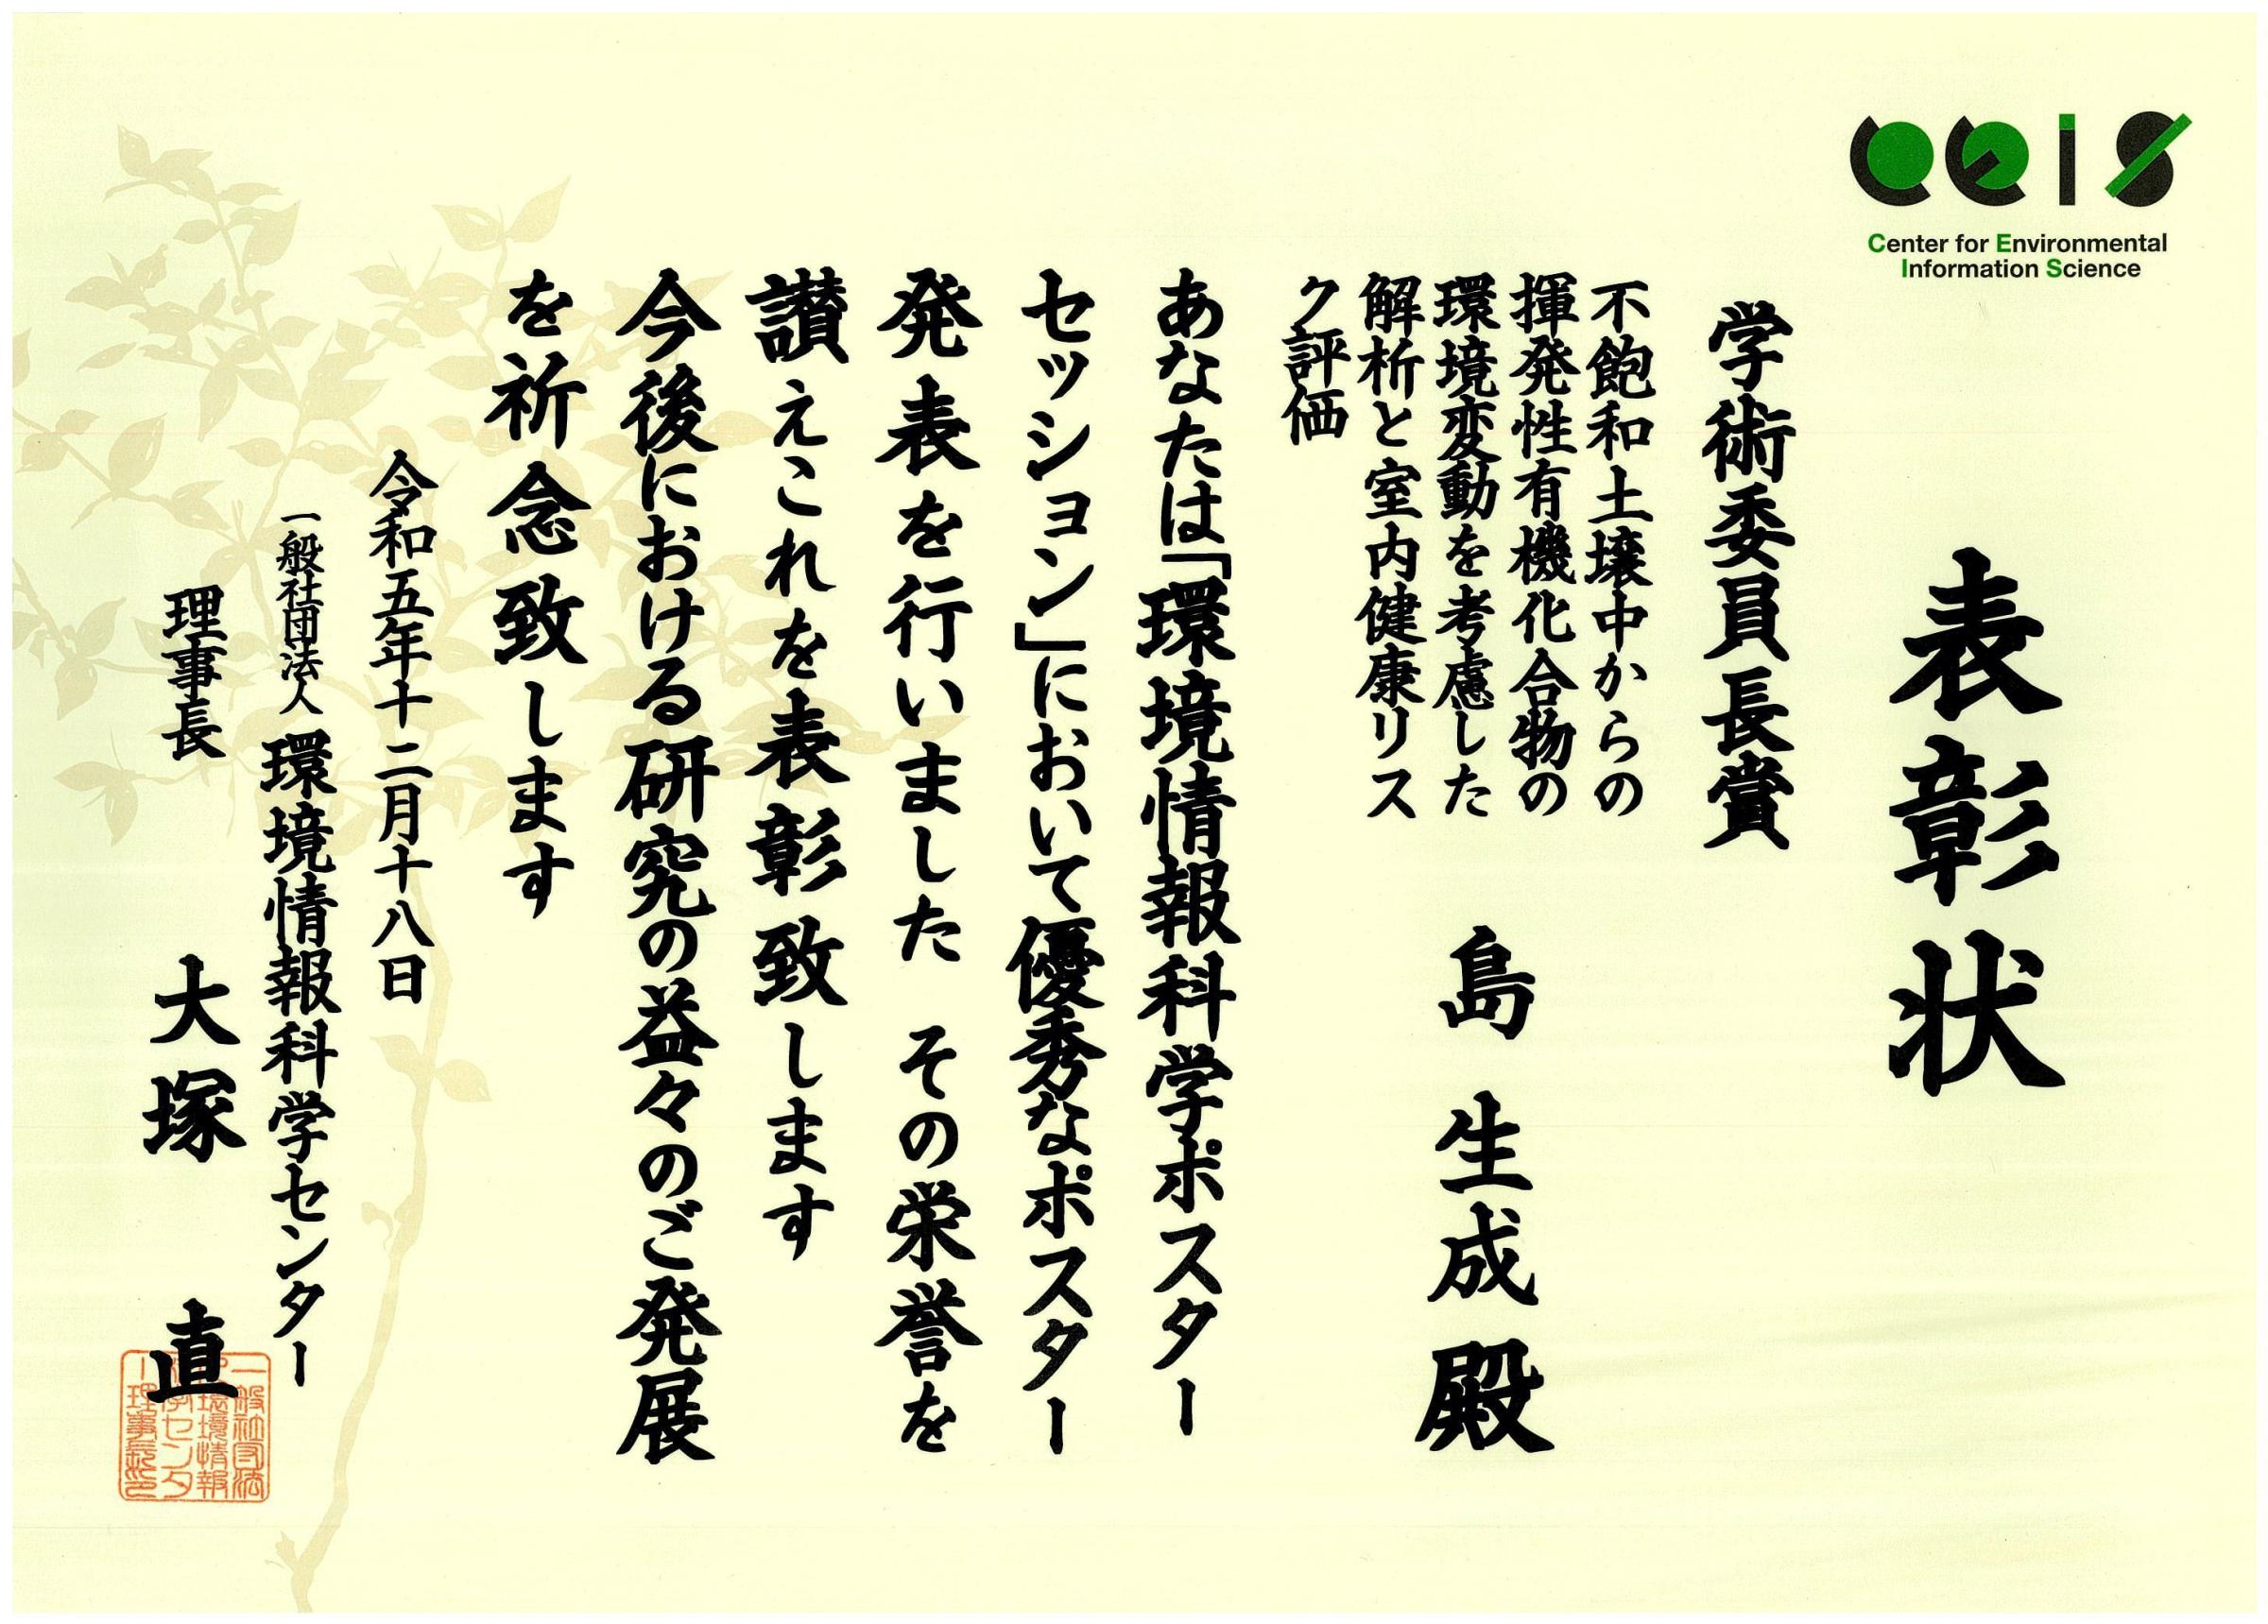 ceis
Center for Environmental
Information Science
表彰状
学術委員長賞
不飽和土壌中からの
揮発性有機化合物の
環境変動を考慮した
解析と室内健康リス
ク評価
島 生成 殿
あなたは「環境情報科学ポスター
セッション」において優秀なポスター
発表を行いました その栄誉を
讃えこれを表彰致します
今後における研究の益々のご発展
を祈念致します
令和五年十二月十八日
一般社団法人 環境情報科学センター
理事長 大塚 直